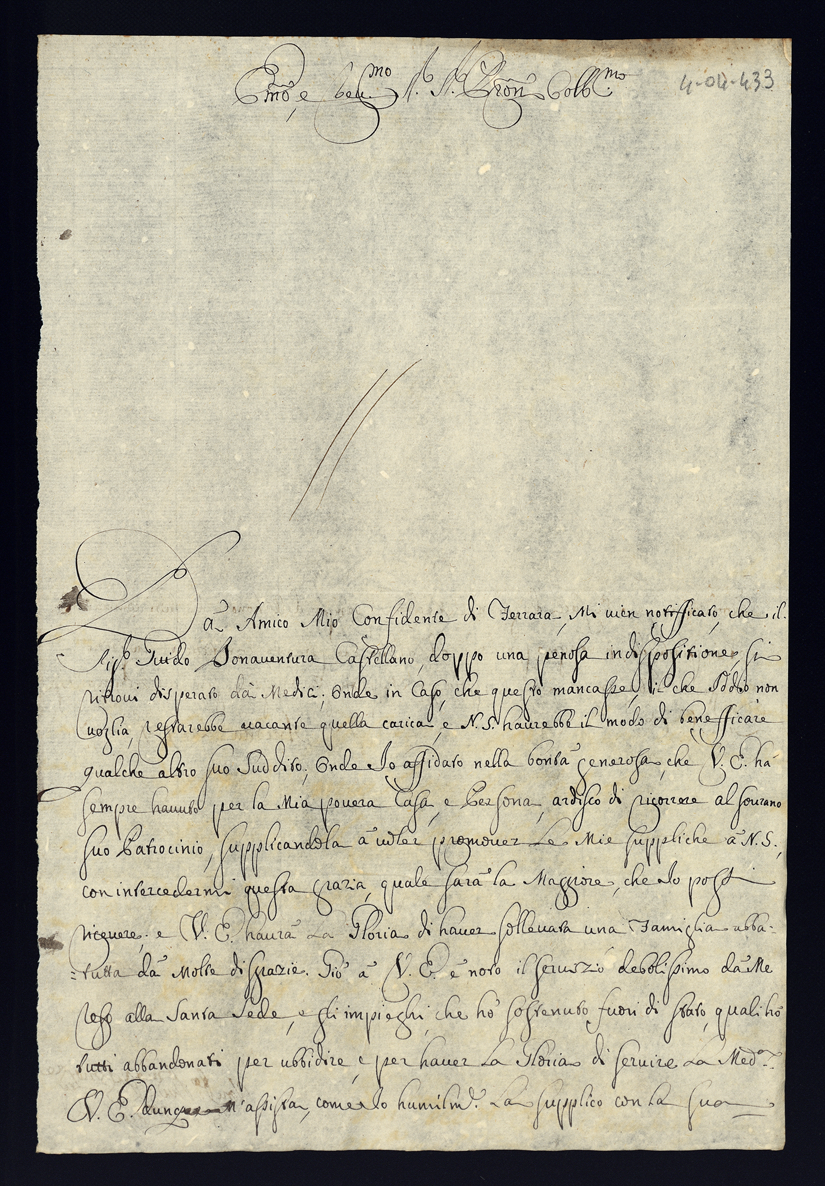 Em̃o, e Reu.mo S.r S.r Pron̄ Coll.mo
4-04-433
Da Amico Mio Confidente di Ferrara, Mi uien notifficato, che il
Sig.r Guido Bonauentura Castellano doppo una penosa indisposizione, si
ritroui disperato dà Medici; Onde in Caso, che questo mancasse, il che Iddio non
uoglia, restarebbe uacante quella carica, e N.S. haurebbe il modo di benefficare
qualche altro suo Suddito, Onde Io affidato nella bontà generosa, che V. E. hà
sempre hauuto per la Mia pouera Casa, e Persona, ardisco di ricorrere al sourano
suo Patrocinio, supplicandola à uoler promouer Le Mie suppliche à N.S.,
con intercedermi questa grazia, quale sarà la Maggiore, che Io possi
riceuere; e V. E. haurà La Gloria di hauer solleuata una Famiglia abba=
=tutta dà Molte disgrazie. Già à V. E. è noto il seruizio debbolissimo dà Me
reso alla Santa Sede, e gli impieghi, che hò sostenuto fuori di stato, quali hò
tutti abbandonati per ubbidire, e per hauer La Gloria di seruire La Med.a
V. E. dunque m'assista, come Io humilm.te La supplico con la sua